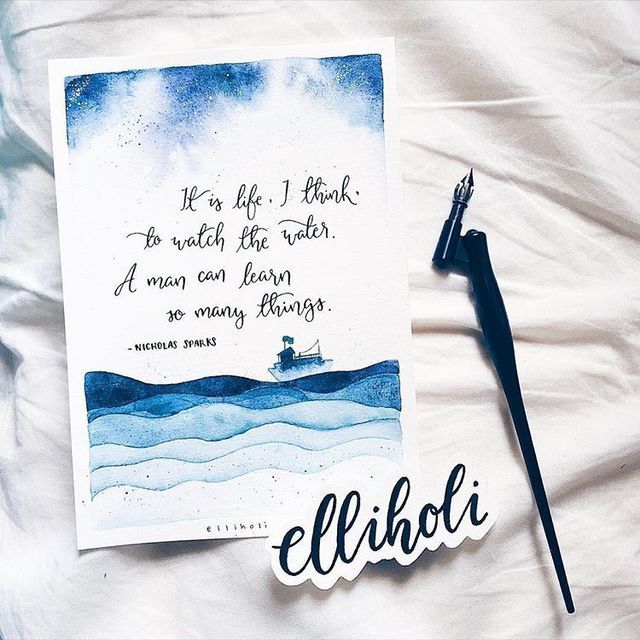 It is life, I think,
to watch the water.
A man can learn
so many things.
- NICHOLAS SPARKS
elliholi
elliholi